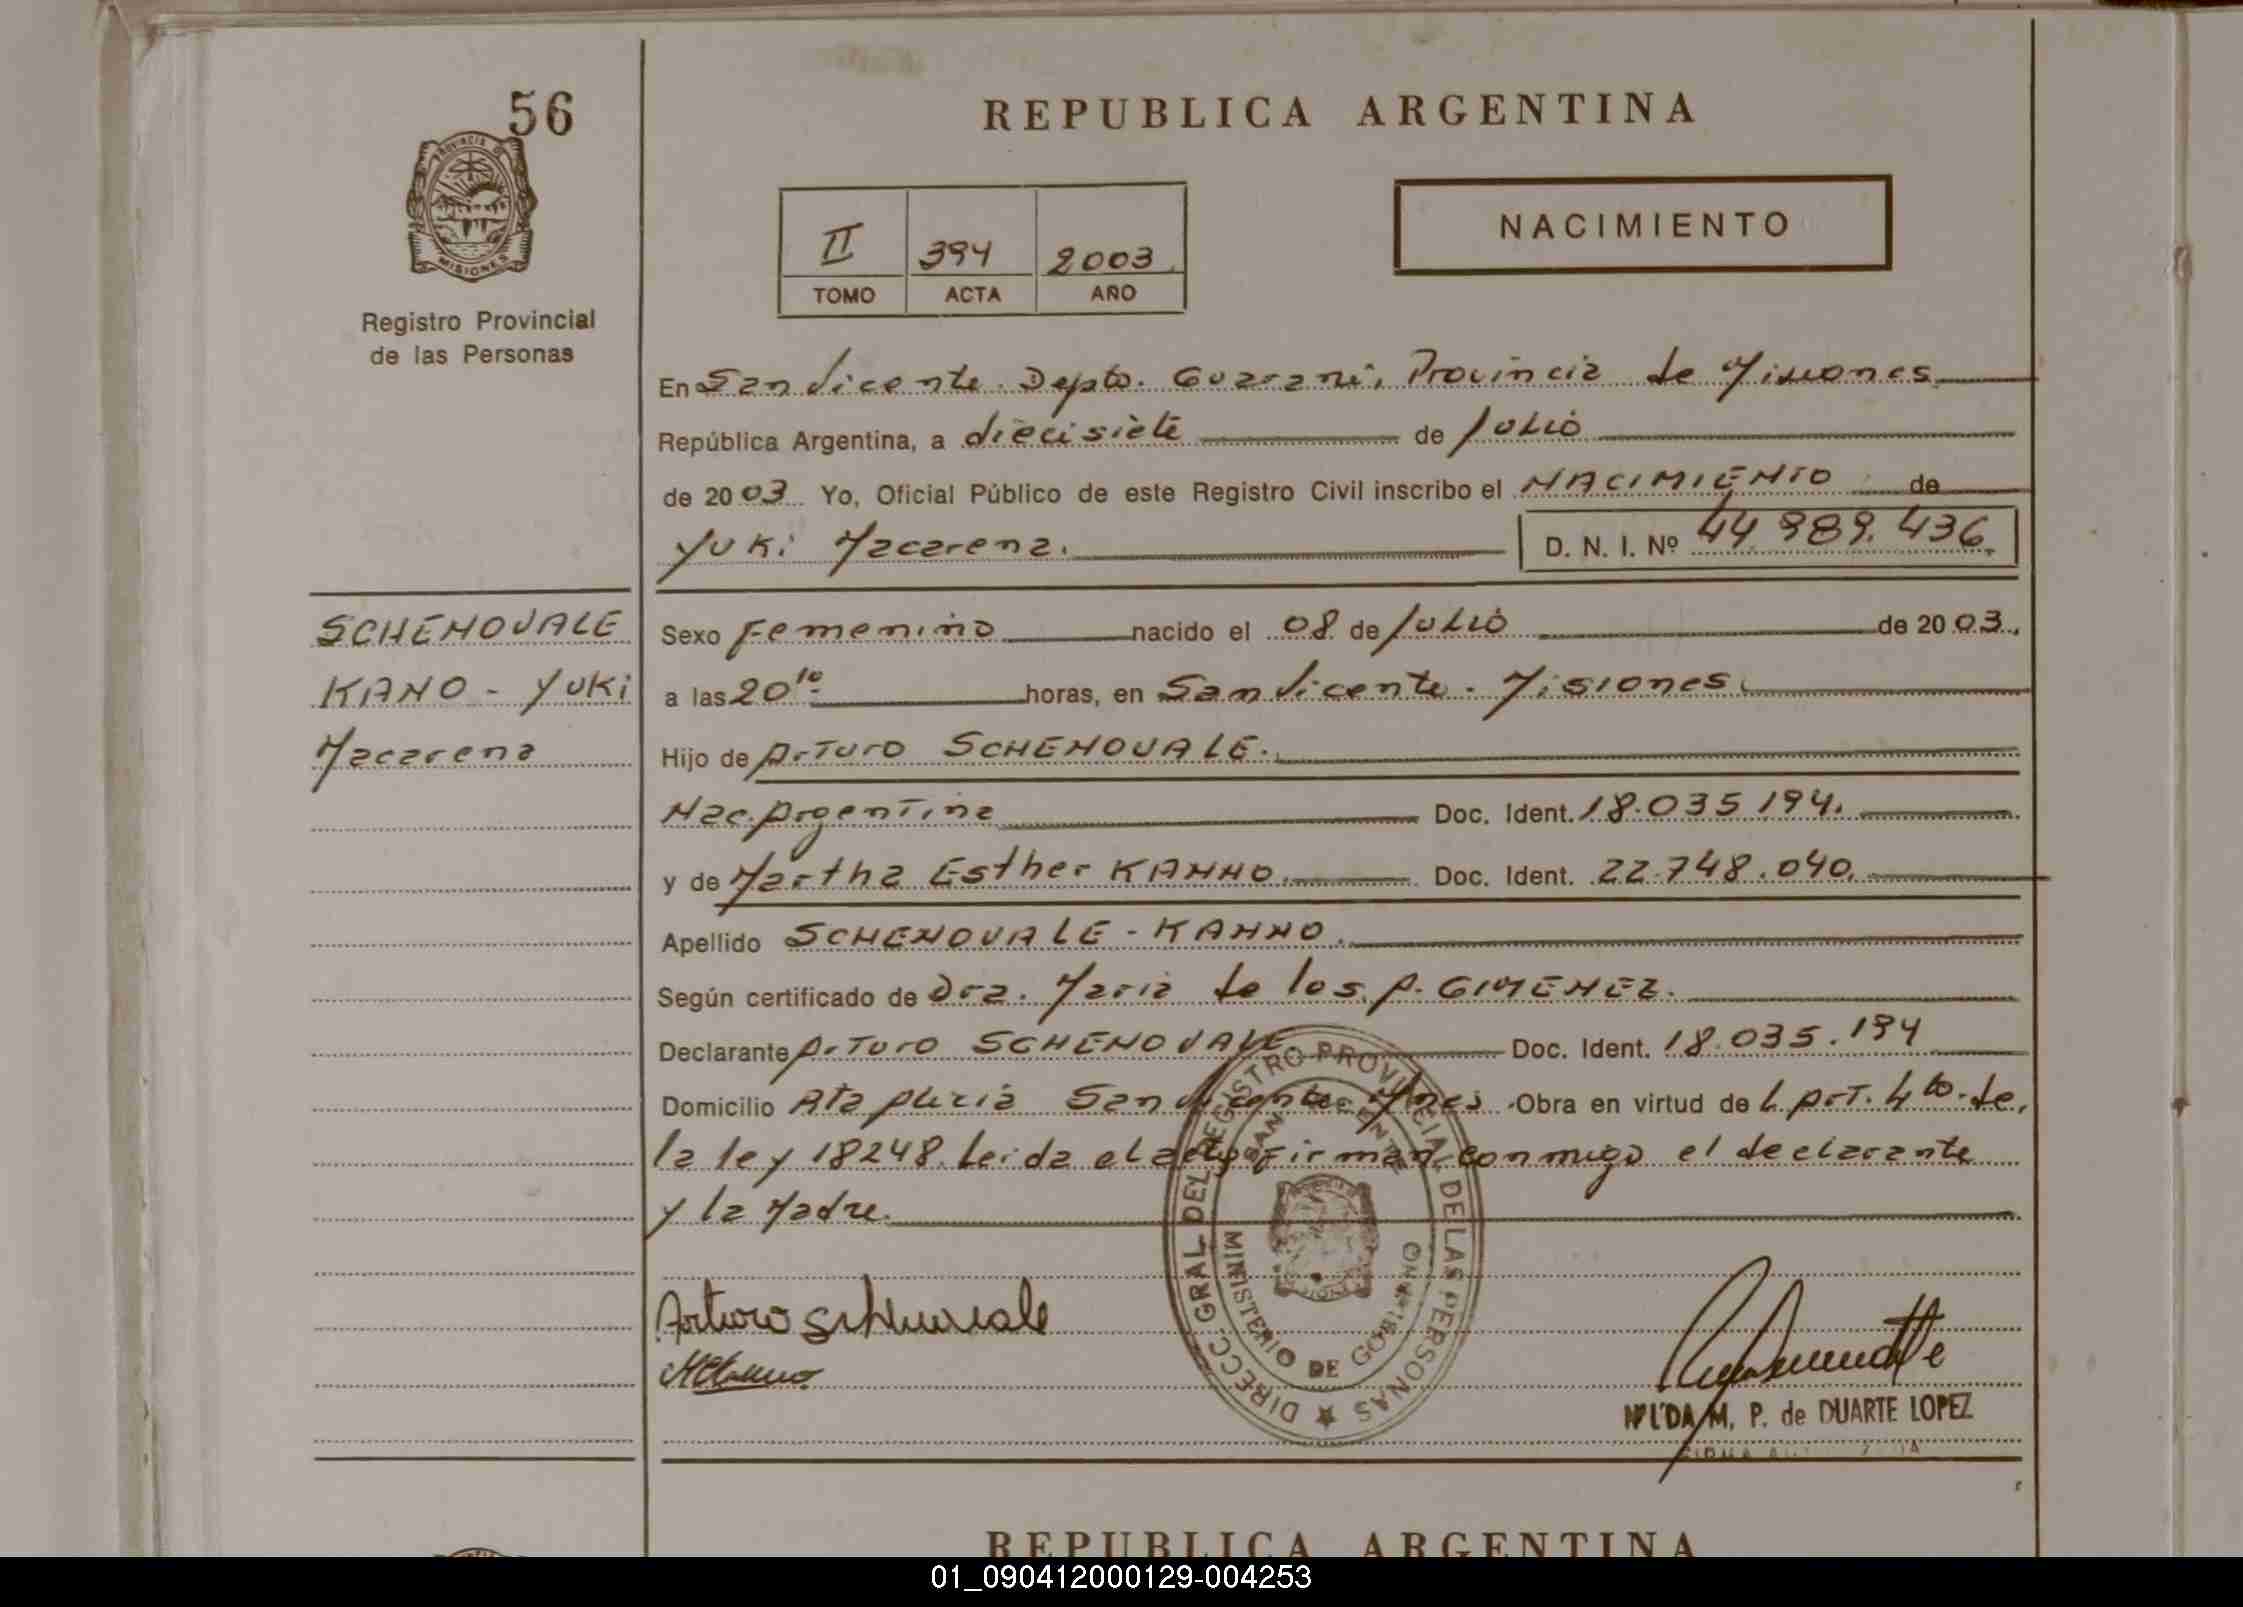 56
PROVINCIA DE
MISIONES
Registro Provincial
de las Personas
REPUBLICA ARGENTINA
II 394 2003
TOMO ACTA AÑO
NACIMIENTO
En San Vicente. Depto. Guarani, Provincia de Misiones
República Argentina, a diecisiete de Julio
de 2003 Yo, Oficial Público de este Registro Civil inscribo el NACIMIENTO de
Yuki Macarena. D. N. I. Nº 44.989.436.
SCHENOVALE
KANO - Yuki
Macarena
Sexo Femenino nacido el 08 de Julio de 2003.
a las 20 10 horas, en San Vicente. Misiones.
Hijo de Arturo SCHENOVALE.
Nac. Argentina Doc. Ident. 18.035 194.
y de Martha Esther KANNO. Doc. Ident. 22.748.040.
Apellido SCHENOVALE - KANNO.
Según certificado de Dra. Maria de los A. GIMENEZ.
Declarante Arturo SCHENOVALE Doc. Ident. 18.035.194
Domicilio Alta Picada San Vicente Mnes. Obra en virtud de L Art. 4to. de
la ley 18248. Leida el acta firman conmigo el declarante
y la Madre.
DIRECC. GRAL DEL REGISTRO PROVINCIAL DE LAS PERSONAS
SAN VICENTE
MINISTERIO DE GOBIERNO
Arturo Schenovale
M. P. de DUARTE LOPEZ
REPUBLICA ARGENTINA
01_090412000129-004253